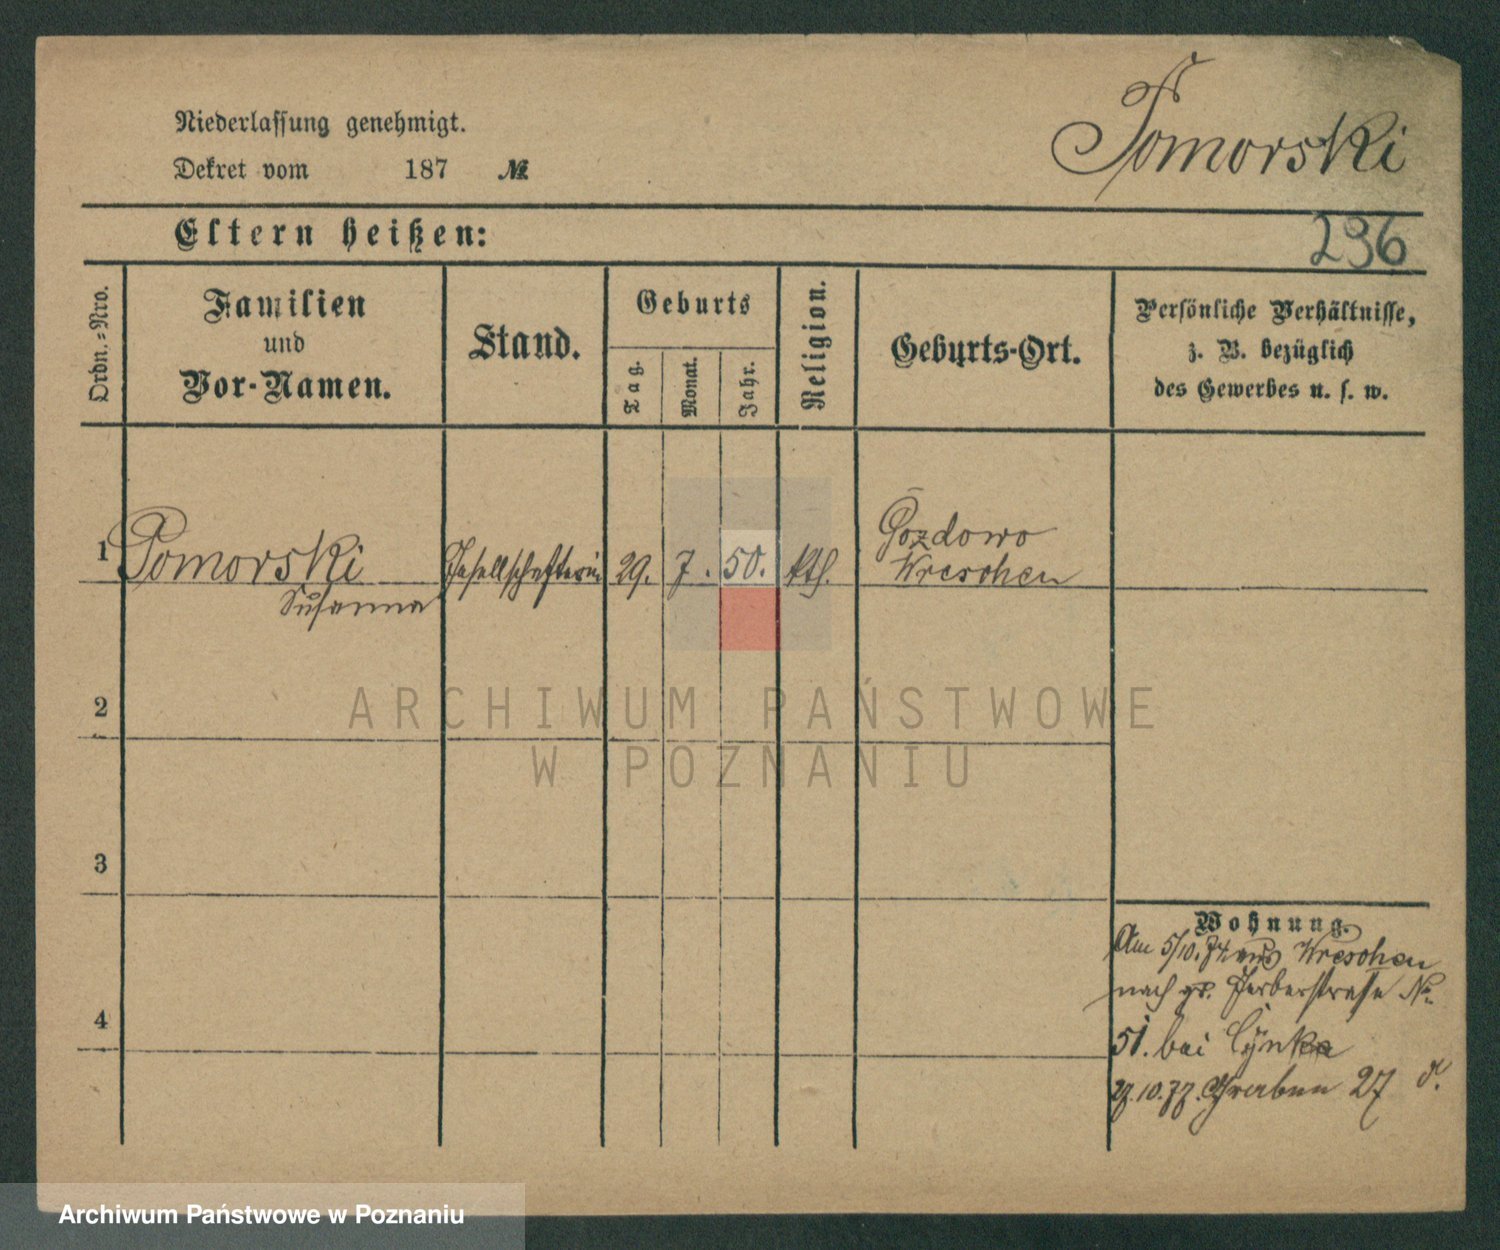 Niederlassung genehmigt.
Dekret vom 187 №
Pomorski
Eltern heißen:
236
Ordn.-Nro.
Familien
und
Vor-Namen.
Stand.
Geburts
Tag.
Monat.
Jahr.
Religion.
Geburts-Ort.
Persönliche Verhältnisse,
z. B. bezüglich
des Gewerbes u. s. w.
1 Pomorski Gesellschafterin 29. 7. 50. kth. Gozdowo
Wreschen
Susanna
2
ARCHIWUM PAŃSTWOWE
W POZNANIU
3
Wohnung.
Am 5/10. 74 aus Wreschen
nach gr. Gerberstrasse No
4
51. bei Cynka
27.10.77. Graben 27
Archiwum Państwowe w Poznaniu